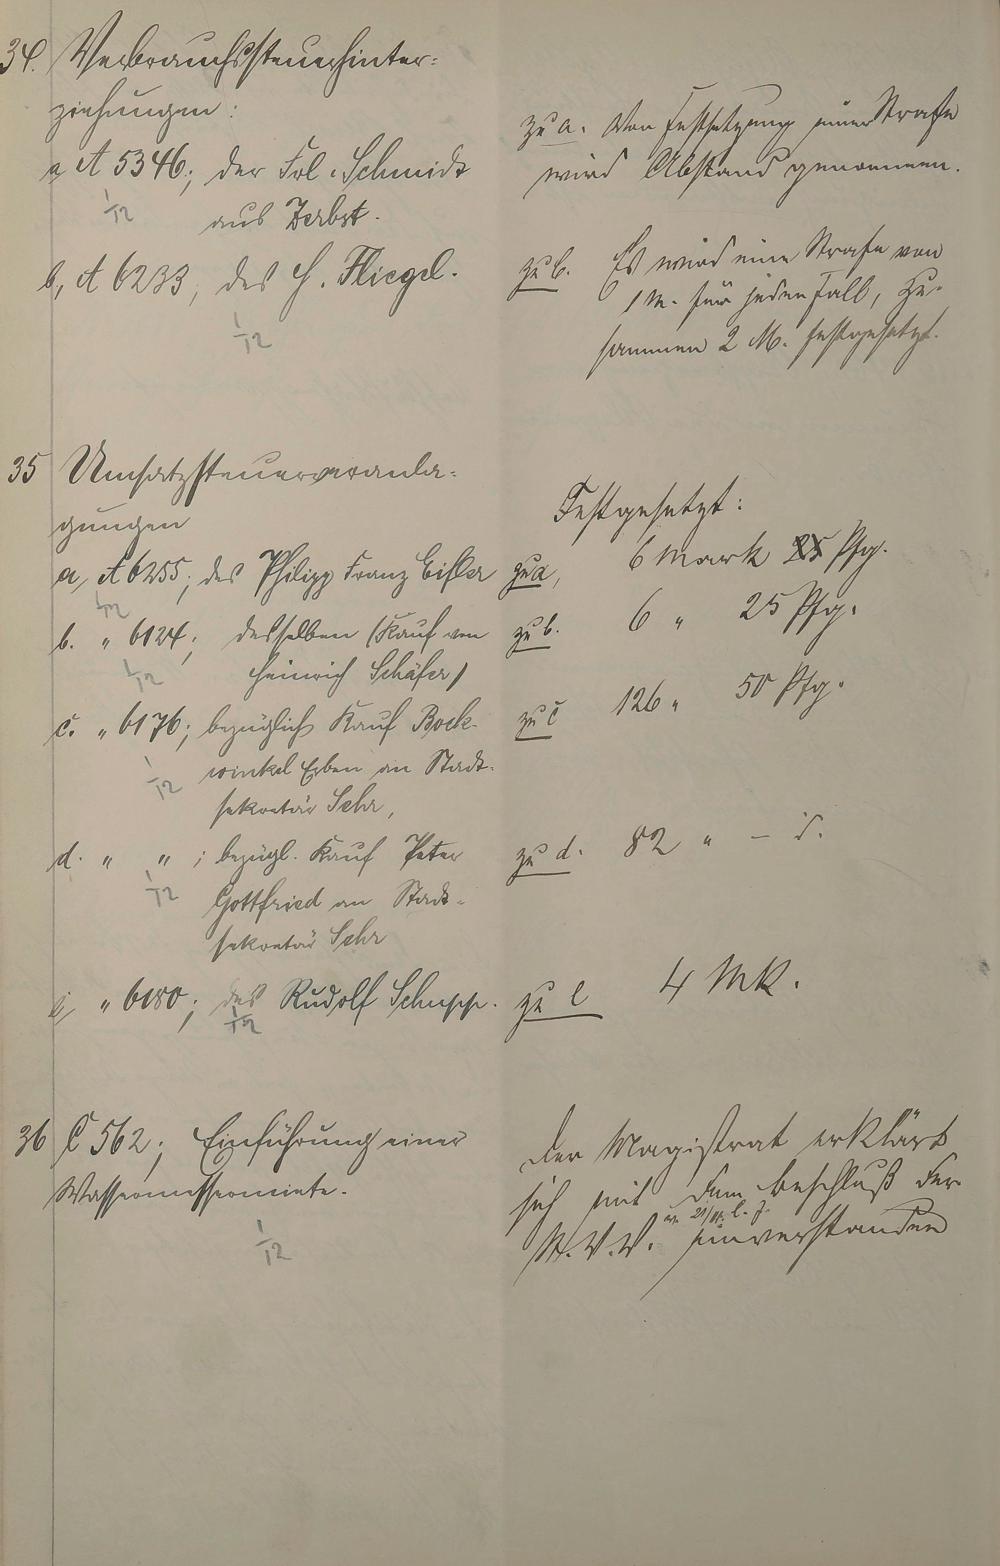 34. Verbrauchssteuerhinter-
ziehungen:
a, A 5346; der Frl. Schmidt
1/12
aus Zerbst.
b, A 6233, des H. Fliegel.
1/12
zu a. Von Festsetzung einer Strafe
wird Abstand genommen.
zu b. Es wird eine Strafe von
1 M. für jeden Fall, zu-
sammen 2 M. festgesetzt.
35 Umsatzsteuerveranla-
gungen
Festgesetzt:
a, A 6255; des Philipp Franz Eisler
1/12
zu a, 6 Mark 25 Pfg.
b. " 6124; desselben (Kauf von
1/12
Heinrich Schäfer)
zu b. 6 " 25 Pfg.
c. " 6176; bezüglich Kauf Bock-
1/12
winkel Erben an Stadt-
sekretär Sehr,
zu c 126 " 50 Pfg.
d. " " ; bezügl. Kauf Peter
1/12
Gottfried an Stadt-
sekretär Sehr
zu d. 82 " –
" 6180; des Rudolf Schupp.
1/12
zu e 4 Mk.
36 C 562; Einführung einer
Wassermessermiete.
1/12
Der Magistrat erklärt
sich mit dem Beschluß der
St. V. V. v. 21/11. l. J. einverstanden